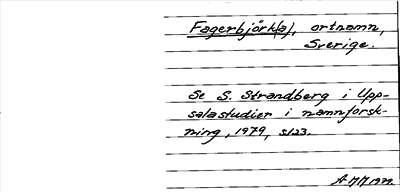 Fagerbjörk(a), ortnamn,
Sverige.
Se S. Strandberg i Upp-
salastudier i namnforsk-
ning, 1979, s123.